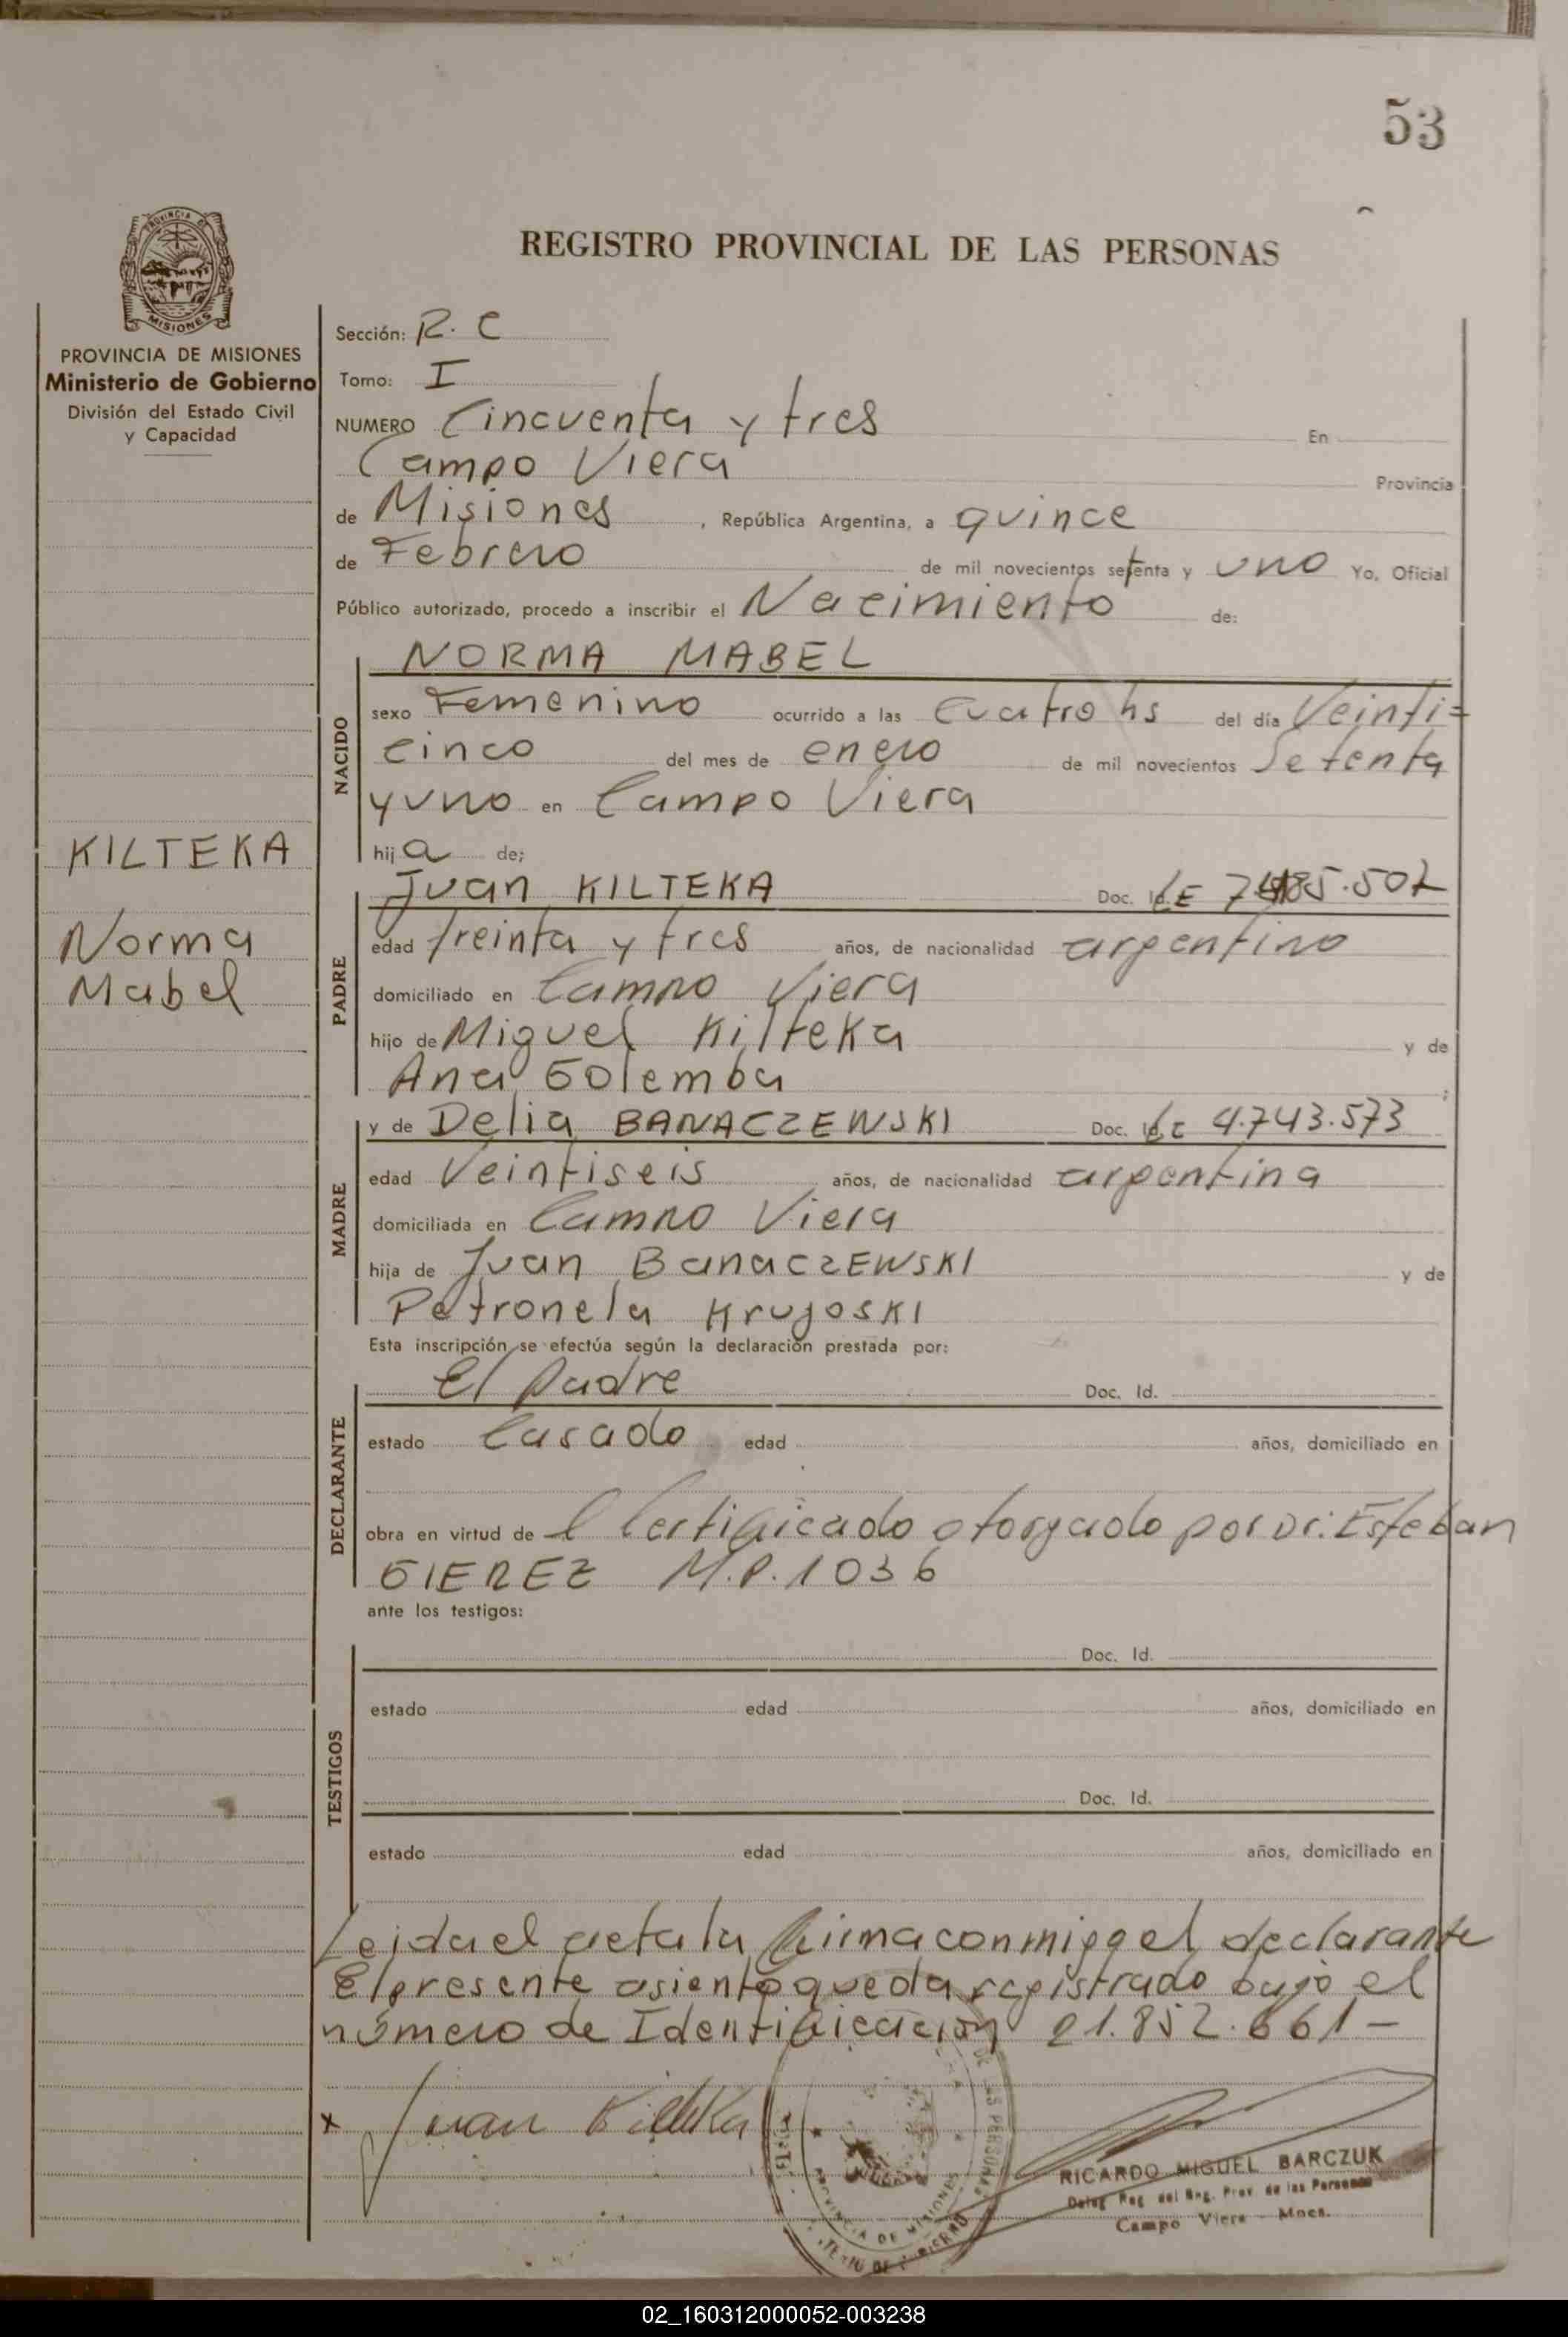 53
REGISTRO PROVINCIAL DE LAS PERSONAS
PROVINCIA DE
MISIONES
PROVINCIA DE MISIONES
Ministerio de Gobierno
División del Estado Civil
y Capacidad
KILTEKA
Norma
Mabel
Sección: R. C
Tomo: I
NUMERO Cincuenta y tres En
Campo Viera Provincia
de Misiones, República Argentina, a quince
de Febrero de mil novecientos setenta y uno Yo, Oficial
Público autorizado, procedo a inscribir el Nacimiento de:
NACIDO
NORMA MABEL
sexo Femenino ocurrido a las Cuatro hs del día Veinti=
cinco del mes de enero de mil novecientos Setenta
y uno en Campo Viera
hija de;
PADRE
Juan KILTEKA Doc. Id. LE
edad treinta y tres años, de nacionalidad argentino
domiciliado en Campo Viera
hijo de Miguel Kilteka y de
Ana Golemba ;
MADRE
y de Delia BANACZEWSKI Doc. Id. LC 4.743.573
edad Veintiseis años, de nacionalidad argentina
domiciliada en Campo Viera
hija de Juan BanaczEWSKI y de
Petronela Krujoski
Esta inscripción se efectúa según la declaración prestada por:
DECLARANTE
El padre Doc. Id.
estado Casado edad años, domiciliado en
obra en virtud de l Certificado otorgado por Dr: Esteban
GIEREZ M.P. 1036
ante los testigos:
TESTIGOS
Doc. Id.
estado edad años, domiciliado en
Doc. Id.
estado edad años, domiciliado en
Leida el acta la firma conmigo el declarante
El presente asiento queda registrado bajo el
número de Identificación 21.852.661 -
x Juan Kilteka
DE LAS PERSONAS
PROVINCIA DE MISIONES
RICARDO MIGUEL BARCZUK
Deleg Reg del Reg. Prov. de las Personas
Campo Viera - Mnes.
02_160312000052-003238